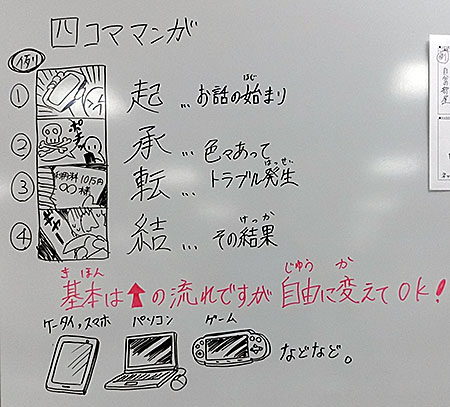 四コママンガ
例
① 起 … お話の始まり
はじ
② ポチッ 承 … 色々あって
③ 転 … トラブル発生
はっせい
④ 結 … その結果
けっか
きほん じゆう か
基本は↑の流れですが自由に変えてOK!
ケータイ,スマホ パソコン ゲーム
などなど。